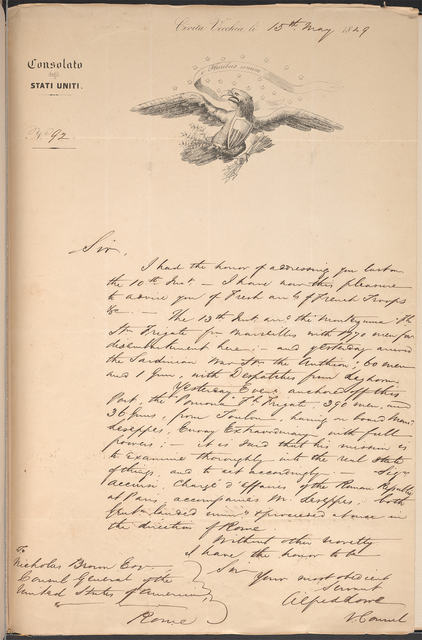 Civita Vecchia le 15th May 1849
Consolato
degli
STATI UNITI.
Pluribus unum
No 92
Sir,
I had the honor of addressing you last on
the 10th Inst — I have now the pleasure
to advise you of fresh arrl of French Troops
&c. — The 13th Inst arrd the Montezuma Fh
Stm Frigate fm Marseilles with 1970 men for
disembarkment here; — and yesterday arrived
the Sardinian War Stm the Authion; 60 men
and 1 Gun, with Despatches from Leghorn
Yesterday Eveng anchored off this
Port, the Pomona Fh Frigate, 290 men, and
36 Guns, from Toulon having on board Monsr
Lesseps, Envoy Extraordinary with full
powers; — it is said that his mission is
to examine thoroughly into the real state
of things and to act accordingly. — Sigr
Accursi, Chargé d'affaires of the Roman Republic
at Paris, accompanies Mr. Lesseps. both
landed and proceeded at once in
the direction of Rome.
Without other novelty
I have the honor to be
Sir
Your most obedient
Servant
Alfred Lowe
V. Consul
To
Nicholas Brown Esqr
Consul General of the
United States of America,
Rome